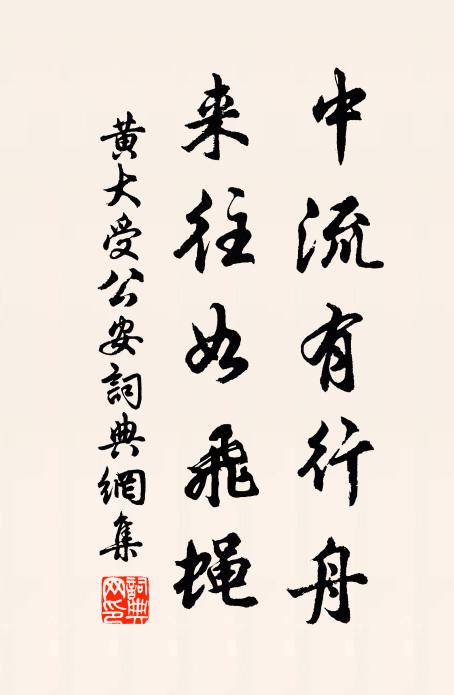 中流有行舟
来往如飛蝇
黄大受公安詞典網集
詞典
网印